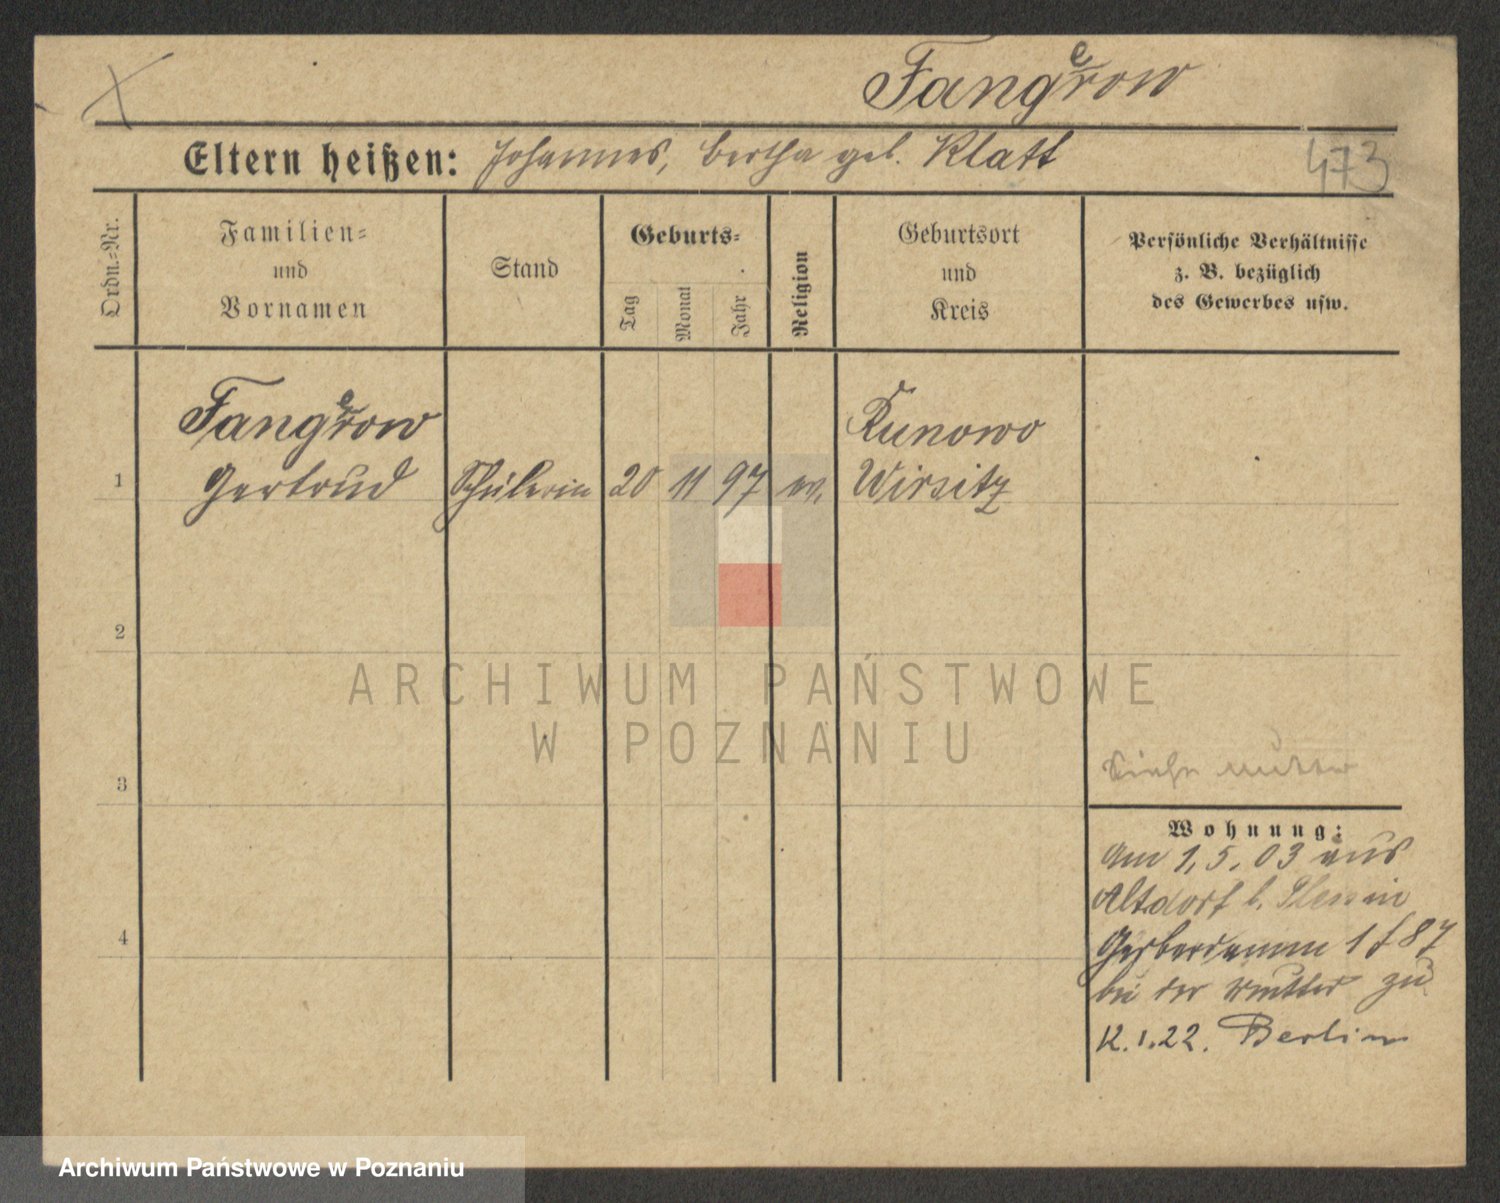 Fangerow
Eltern heißen: Johannes, Bertha geb. Klatt
473
Ordn.=Nr.
Familien=
und
Vornamen
Stand
Geburts=
Tag
Monat
Jahr
Religion
Geburtsort
und
Kreis
Persönliche Verhältnisse
z. B. bezüglich
des Gewerbes usw.
1
Fangerow
Gertrud
Schülerin
20
11
97
ev.
Kunowo
Wirsitz
2
3
4
Siehe Mutter
Wohnung:
Am 1.5.03 aus
Altdorf b.
Gerberdamm 1 f 87
bei der Mutter zu
12.1.22. Berlin
ARCHIWUM PAŃSTWOWE
W POZNANIU
Archiwum Państwowe w Poznaniu